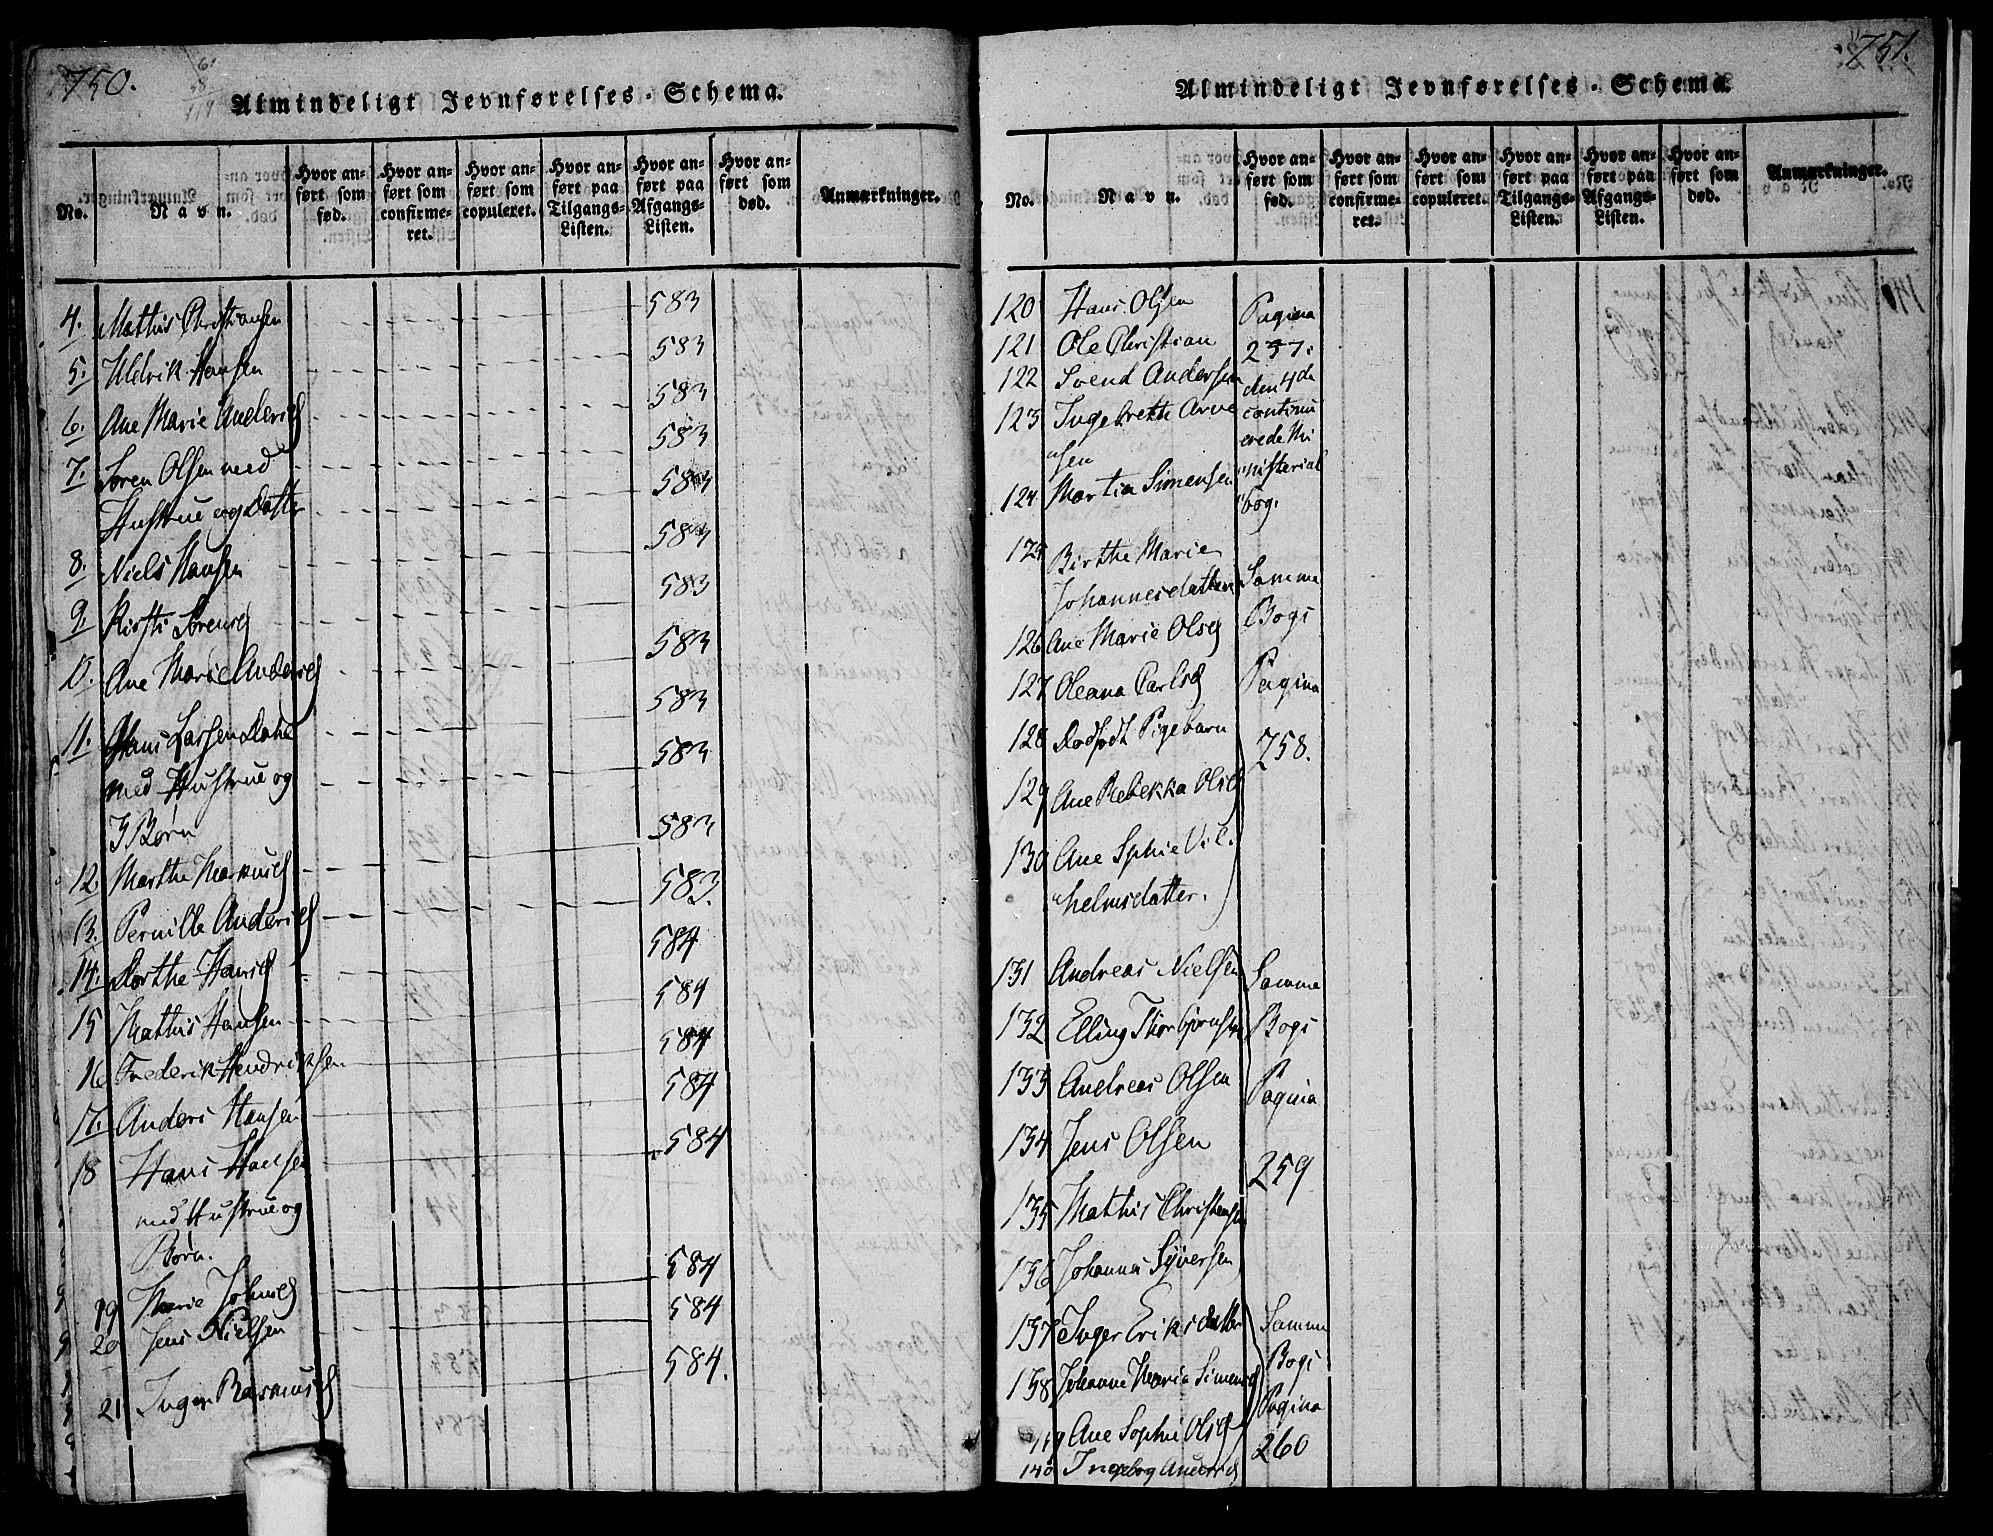 750.
Almindeligt Jevnførelses-Schema.
No. Navn. Hvor anført som fød. Hvor anført som confirmeret. Hvor anført som copuleret. Hvor anført paa Tilgangs-Listen. Hvor anført paa Afgangs-Listen. Hvor anført som død. Anmærkninger.
4. Mathis Christiansen 583
5. Uldrik Hansen 583
6. Ane Marie Andersd 583
7. Søren Olsen med 583
Hustrue og Datter 583
8. Niels Hansen 583
9. Kisti Sørensd 583
10. Ane Marie Andersd 583
11. Hans Larsen 583
med Hustrue og 583
3 Børn
12. Marthe Markusd 583
13. Pernille Andersd 583.
14. Dorthe Hansd 584
15 Mathis Hansen 584
16 Frederik Hendriksen 584
17. Anders Hansen 584
18 Hans Hansen 584
med Hustrue og
Børn.
19 Marie Johnsd 584
20 Jens Nielsen 584
21 Inger Rasmusd 584.
751.
Almindeligt Jevnførelses-Schema.
No. Navn. Hvor anført som fød. Hvor anført som confirmeret. Hvor anført som copuleret. Hvor anført paa Tilgangs-Listen. Hvor anført paa Afgangs-Listen. Hvor anført som død. Anmærkninger.
120 Hans Olsen Pagina
121 Ole Christian 257.
122 Svend Andersen den 4de
123 Ingebreth Arne continu
erede Mi
sen
124 Martin Simensen nisterial
bog.
125 Birthe Marie
Johannesdatter Samme
126 Ane Marie Olsd Bogs
127 Oleana Carlsd Pagina
128 Dødfødt Pigebarn
129 Ane Rebekka Olsd 258.
130 Ane Sophie Vil
helmsdatter.
131 Andreas Nielsen Samme
132 Elling Thorbjørnsen Bogs
133 Andreas Olsen Pagina
134 Jens Olsen
259
135 Mathis Christensen
136 Johannes Syversen
137 Inger Eriksdatter Samme
138 Johanne Maria Simensd Bogs
Pagina
139 Ane Sophie Olsd 260
140 Ingeborg Andersd